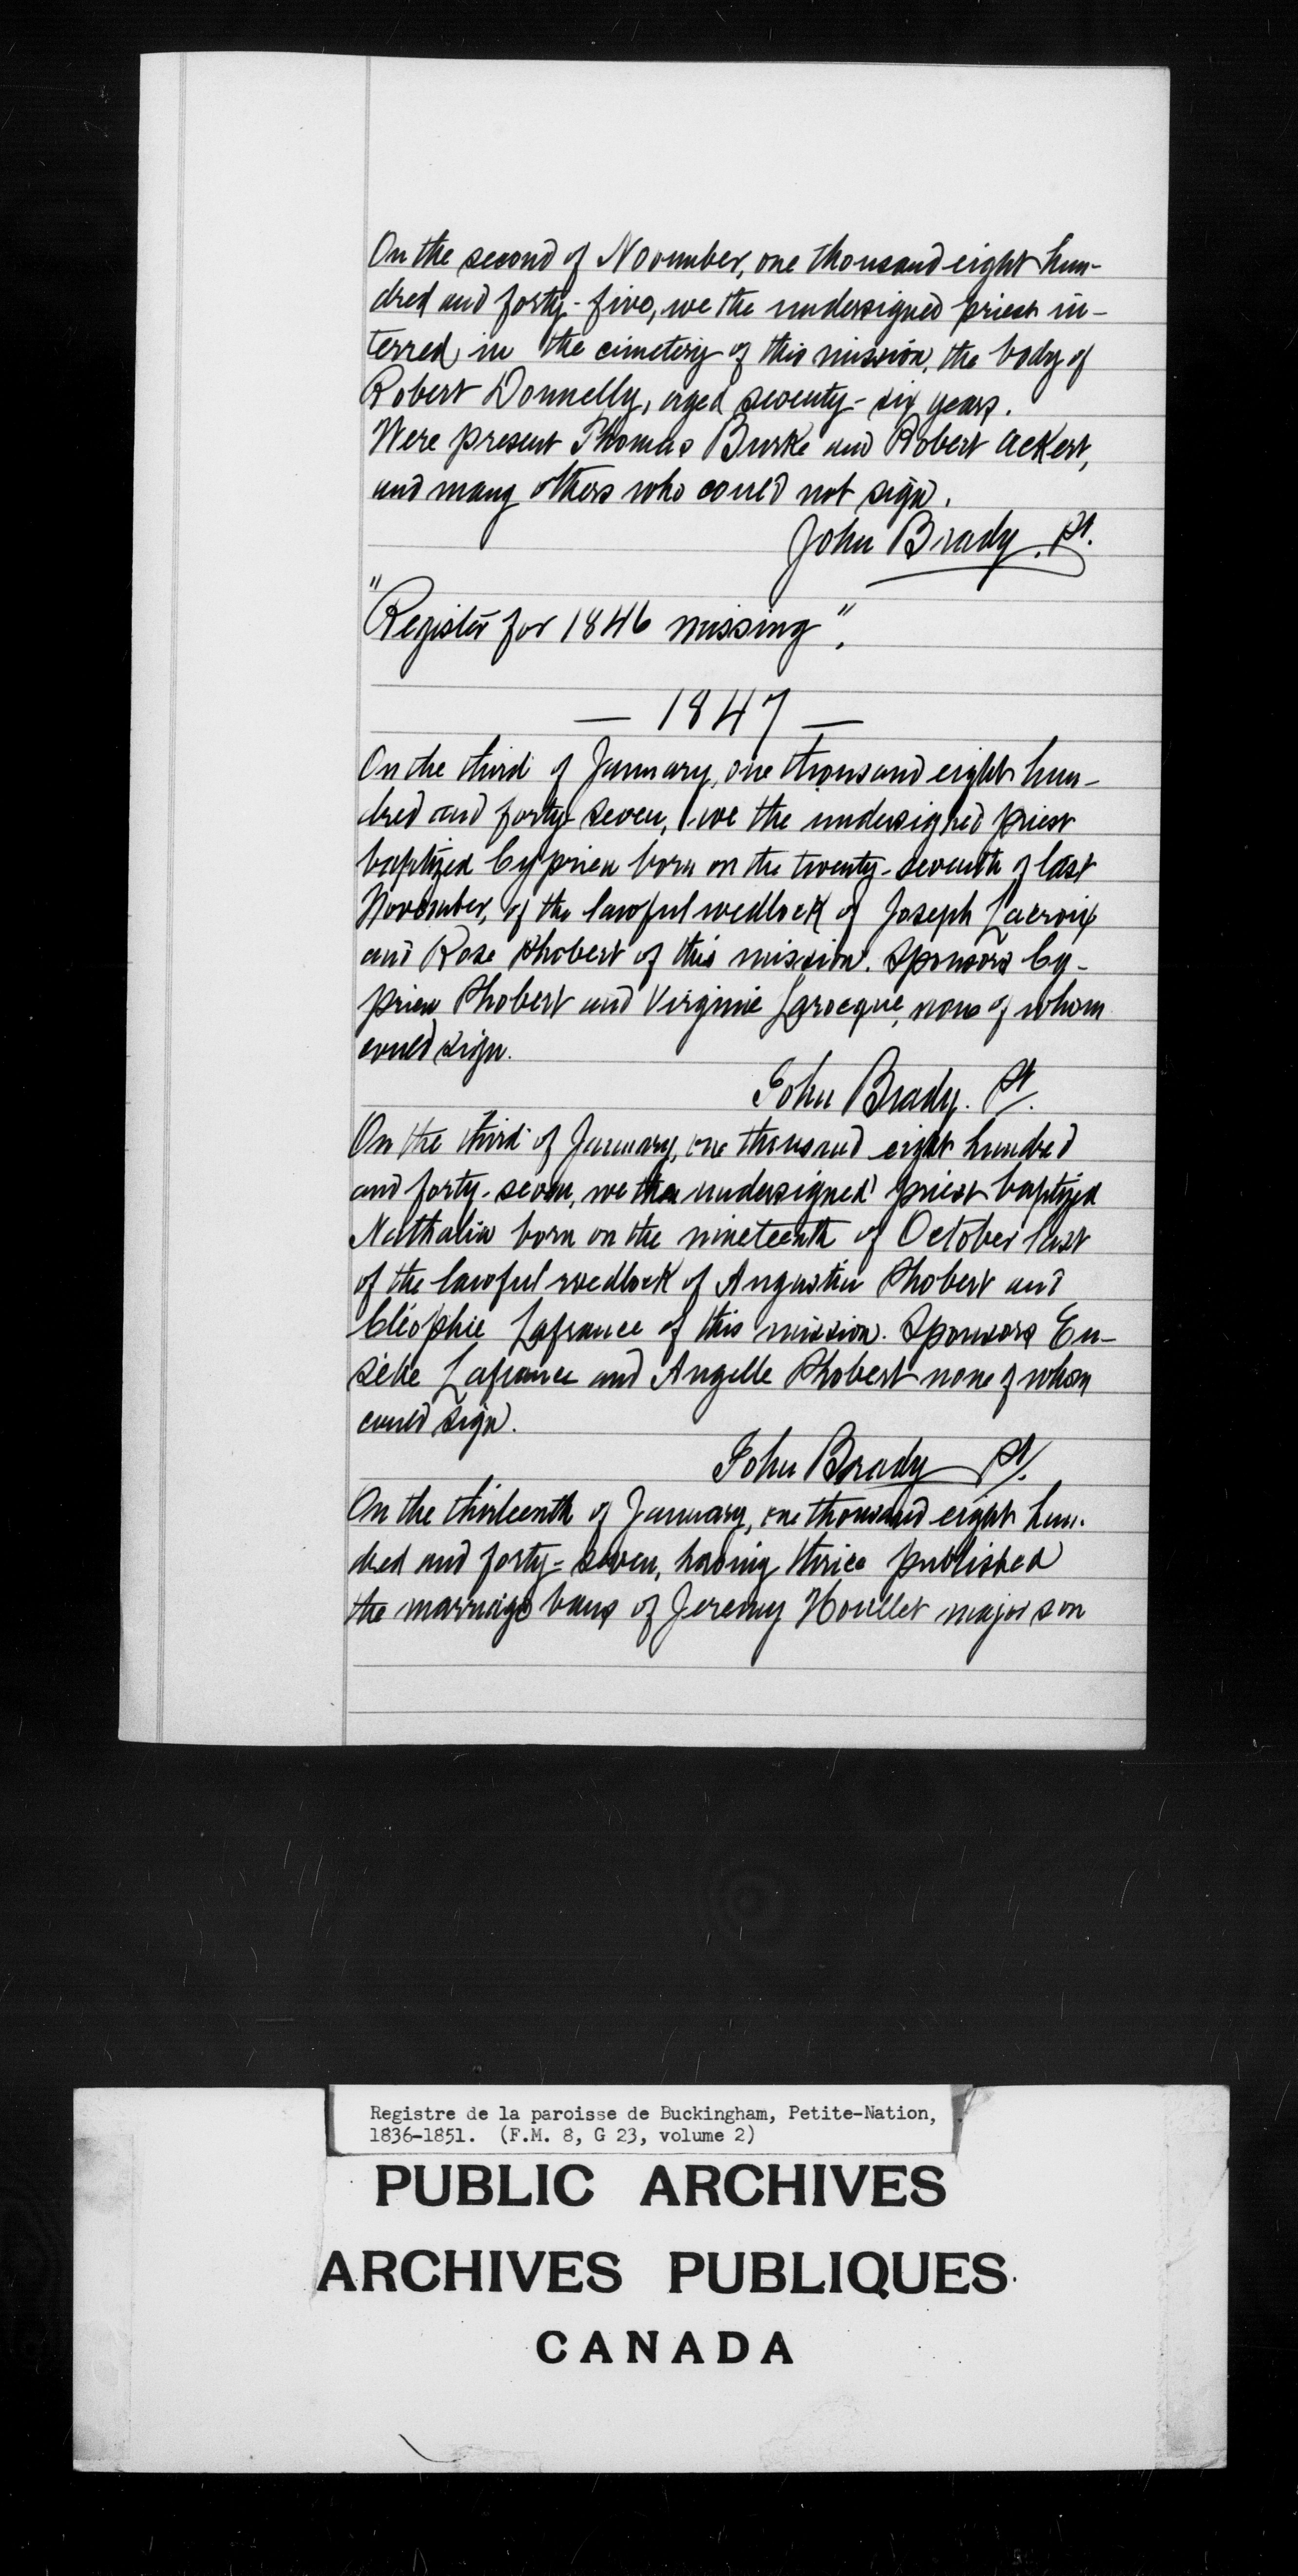 On the second of November, one thousand eight hun-
dred and forty-five, we the undersigned priest in-
terred, in the cimetery of this mission, the body of
Robert Donnelly, aged seventy-six years.
Were present Thomas Burke and Robert Ackert,
and many others who could not sign.
John Brady. Pt.
"Register for 1846 missing".
— 1847 —
On the third of January, one thousand eight hun-
dred and forty-seven, we the undersigned priest
baptized Cyprien born on the twenty-seventh of last
November, of the lawful wedlock of Joseph Lacroix
and Rose Phobert of this mission. Sponsors Cy-
prien Phobert and Virginie Larocque, none of whom
could sign.
John Brady. Pt.
On the third of January, one thousand eight hundred
and forty-seven, we the undersigned priest baptized
Nathalia born on the nineteenth of October last
of the lawful wedlock of Augustin Phobert and
Cléophie Lafrance of this mission. Sponsors Eu-
sèbe Lafrance and Angelle Phobert none of whom
could sign.
John Brady Pt.
On the thirteenth of January, one thousand eight hun-
dred and forty-seven, having thrice published
the marriage bans of Jeremy Houllet major son
Registre de la paroisse de Buckingham, Petite-Nation,
1836-1851. (F.M. 8, G 23, volume 2)
PUBLIC ARCHIVES
ARCHIVES PUBLIQUES
CANADA